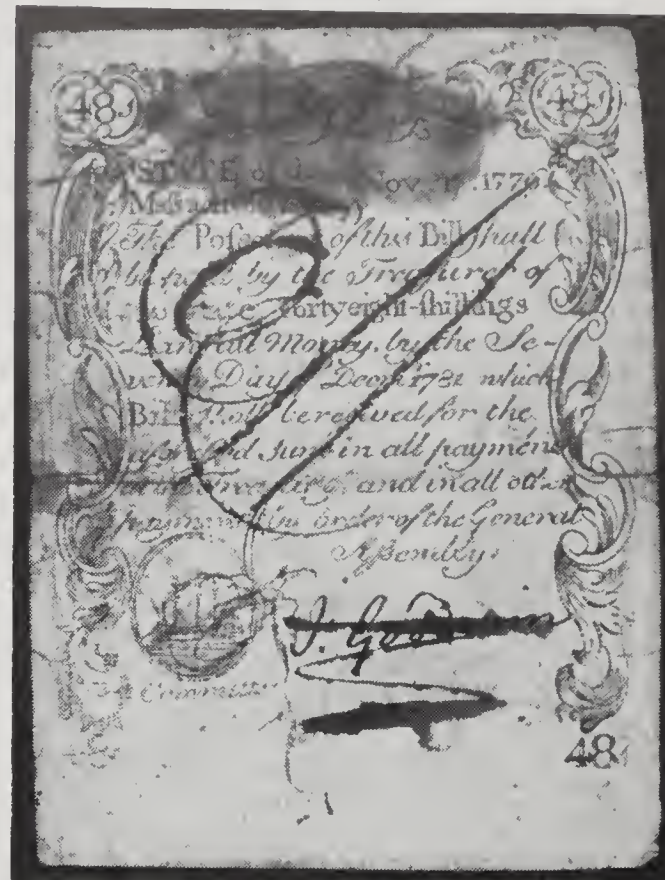 48s 48s
STATE of Nov. 17. 1776
The Possessor of this Bill shall
be paid by the Treasurer of
Fortyeight-shillings
Lawful Money. by the Se-
venth Day of Decmr. 1781 which
Bill shall be received for the
aforesaid sum in all payments
at the Treasury, and in all other
payments by order of the General
Assembly.
Committee
48s